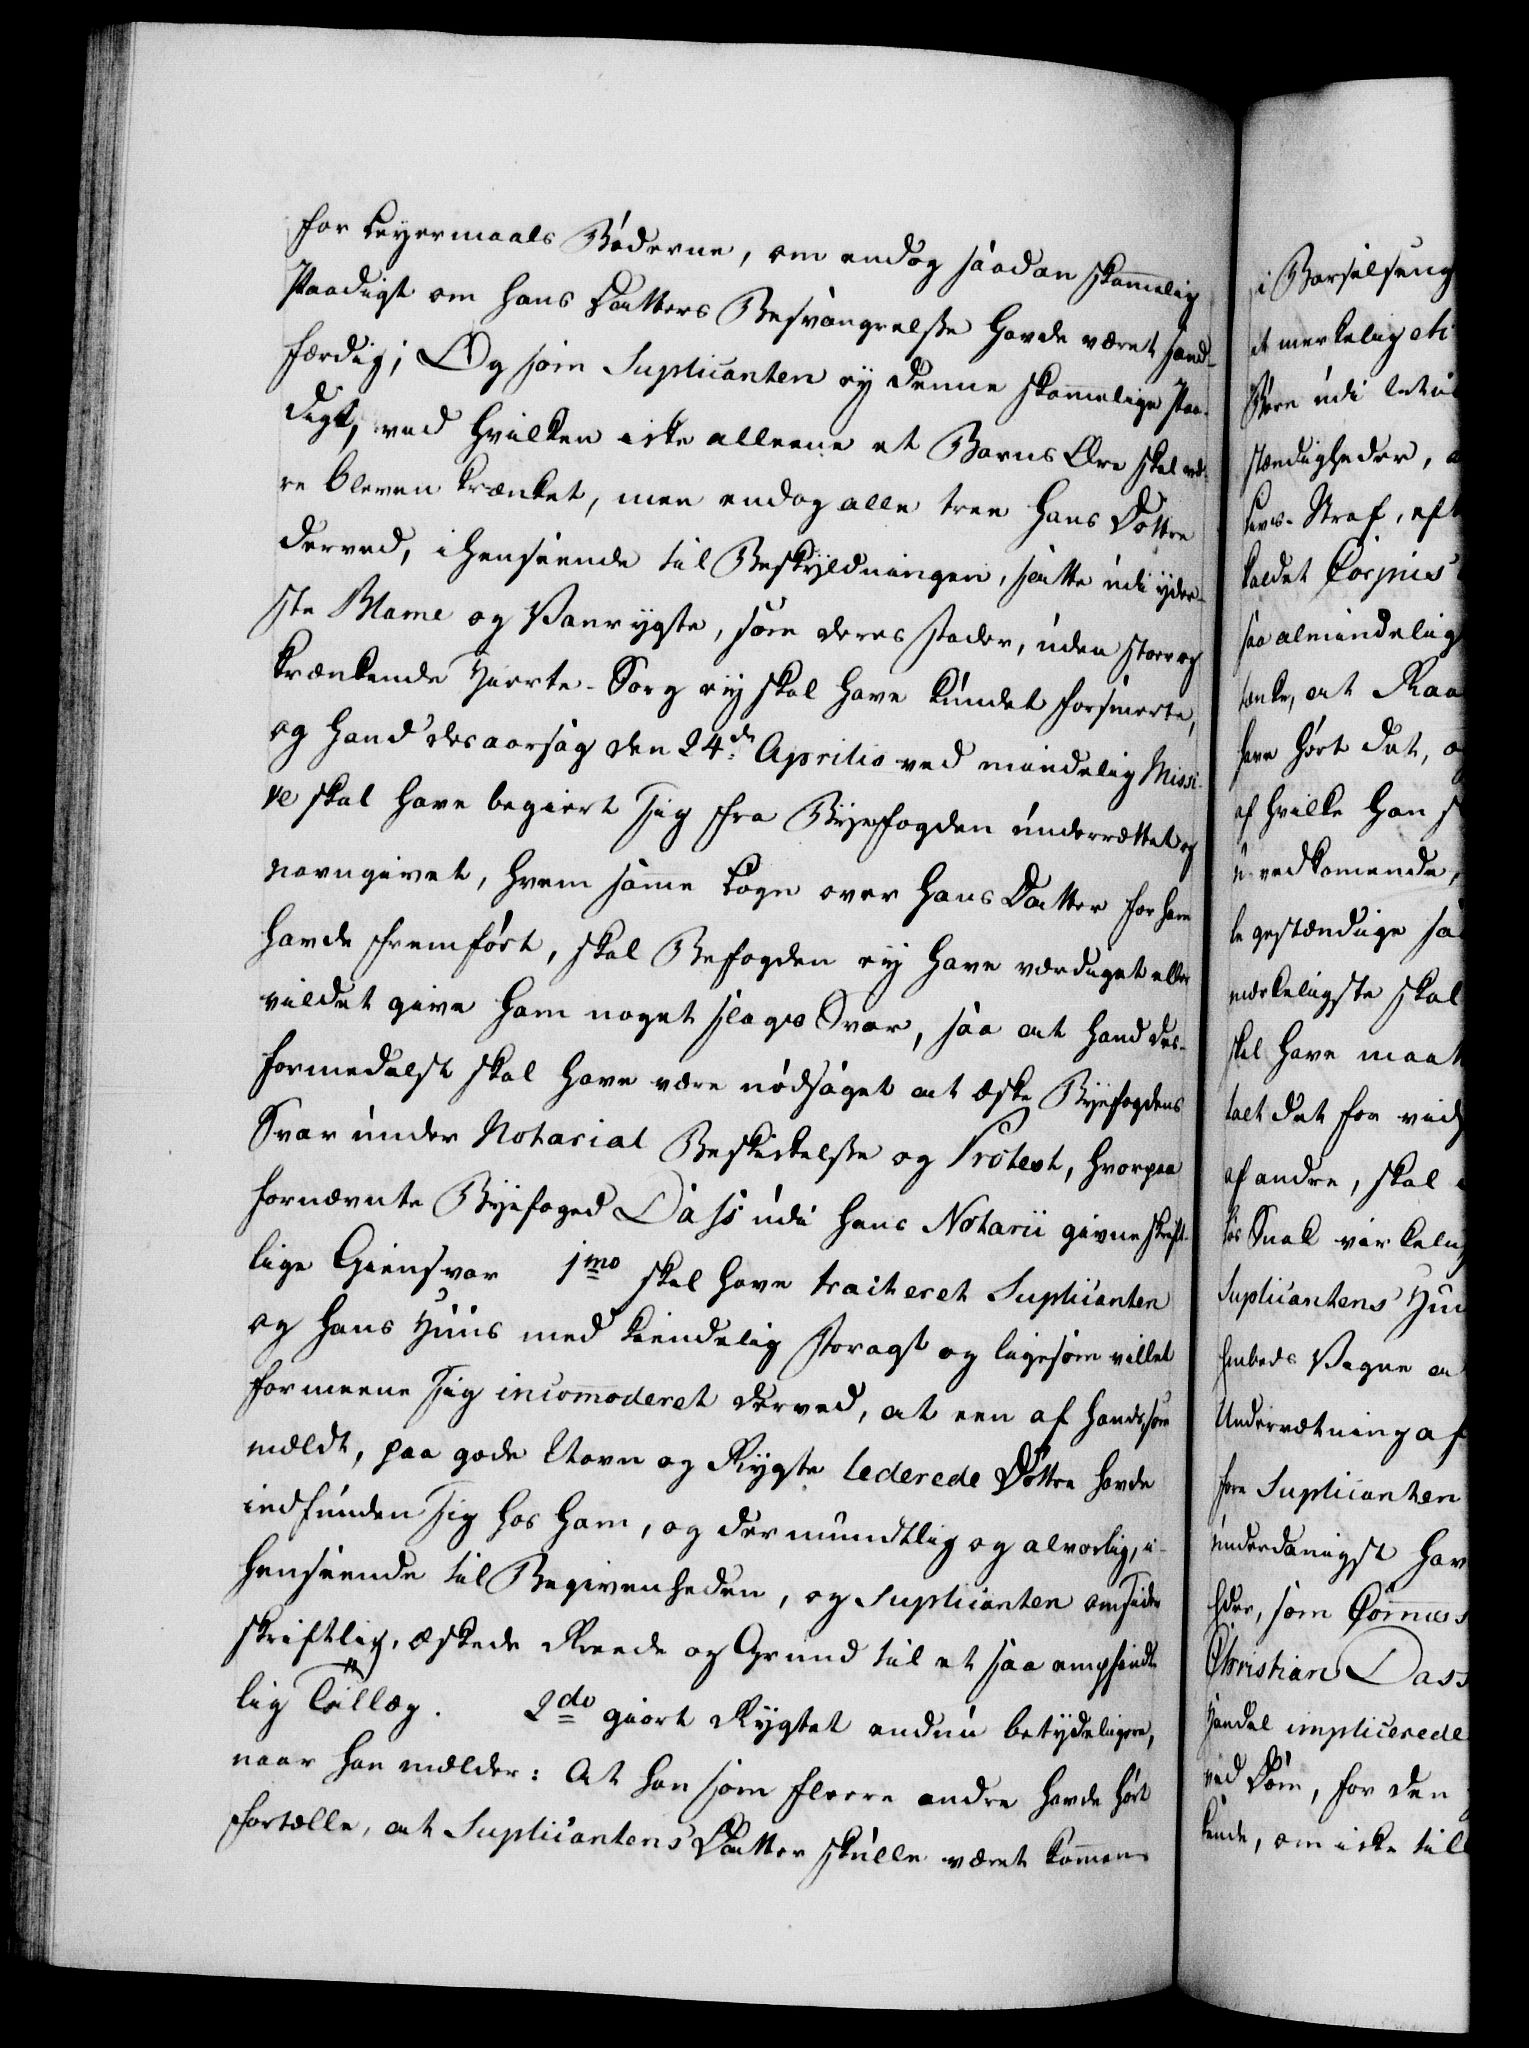 for Leyermaals Bøderne, om endog saadan skammelig
Paadigt om hans Datters Besvangrelse havde været sand-
færdig; Og som Suplicanten ey denne skammelige Paa-
digt, ved hvilken icke alleene et Barns Ære skal væ-
re bleven krænket, men endog alle tree hans Døttre
derved, i henseende til Beskyldningen, satte udi yder-
ste Blame og Vanrygte, som deres Fader, uden stoer og
krænkende Hierte-Sorg ey skal have kundet forsmerte,
og hand desaarsag den 24de Aprilis ved mindelig Missi-
ve skal have begiert sig fra Byefogden underrettet og
navngivet, hvem samme Løgn over hans Datter for ham
havde fremført, skal Byefogden ey have værdiget eller
vildet give ham noget slags Svar, saa at hand des-
formedelst skal have være nødsaget at æske Byefogdens
Svar under Notarial Beskikkelse og Protest, hvorpaa
fornævnte Byefoged Dass udi hans Notarii givne skrift-
lige Giensvar 1mo skal have traiteret Suplicanten
og hans Huus med kiendelig Foragt og ligesom villet
formeene sig incommoderet derved, at een af hands, som
meldt, paa gode Navn og Rygte lederede Døttre havde
indfunden sig hos ham, og der mundtlig og alvorlig, i
henseende til Begivenheden, og Suplicanten omsider
skriftlig, æskede Reede og Grund til et saa empfindt-
lig Tillæg. 2do giort Rygtet endnu betydeligere,
naar han melder: At han som fleere andre havde hørt
fortælle, at Suplicantens Datter skulle været kommen
i Barselseng
et merkelig
Børn udi
stændigheder,
Livs-Straf, eft
kaldet Corpus
saa almindelig
tænke, at Raa
have hørt det,
af hvilke han
uvedkommende,
le gestændige
merkeligste skal
skal have maat
talt det for
af andre, skal
Snak virkelig
Suplicantens Huu
Embeds Vegne
Underretning af
fore Suplicanten
underdanigst hav
som
Christian Dass
Handel implicerede
ved Dom, for den
kiende, om icke till